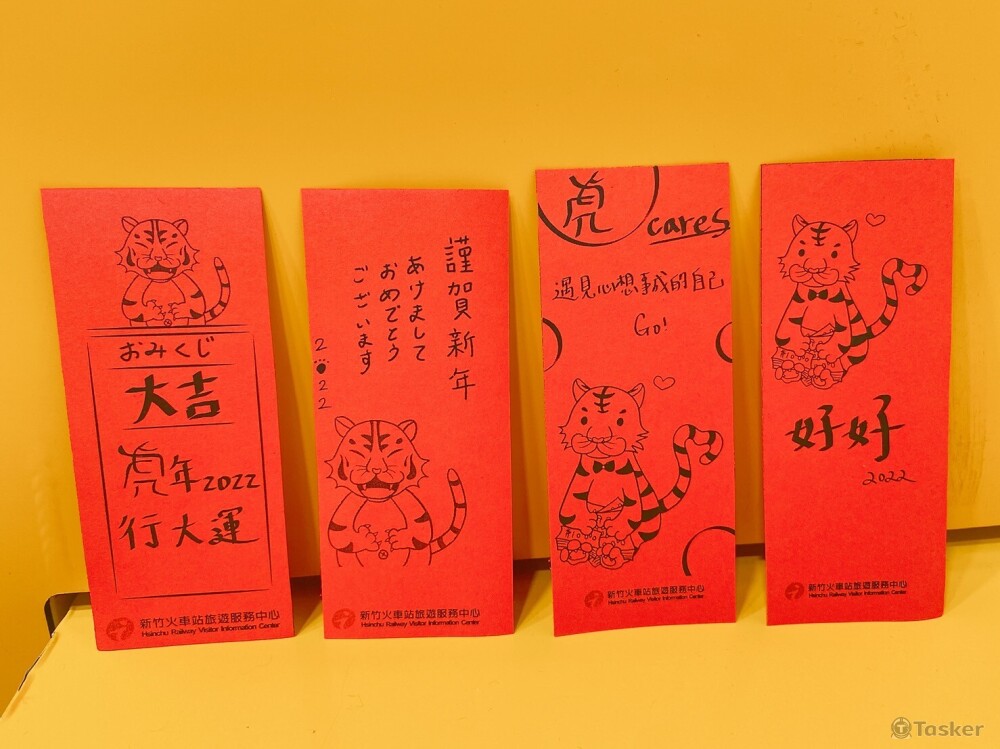 おみくじ
大吉
虎年2022
行大運
新竹火車站旅遊服務中心
Hsinchu Railway Visitor Information Center
謹加賀新年
あけまして
おめでとう
ございます
2022
新竹火車站旅遊服務中心
Hsinchu Railway Visitor Information Center
虎
cares
遇見心想事成的自己
Go!
新竹火車站旅遊服務中心
Hsinchu Railway Visitor Information Center
好好
2022
新竹火車站旅遊服務中心
Hsinchu Railway Visitor Information Center
Tasker